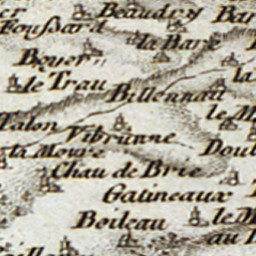 er Beaudry Bar
Foussard
la Bare
Bouer
le Trau
la
Billennau
le M
Talon
Vibranne
la Moure
Doul
Chau de Brie
Gatineaux
Boileau
le M
au